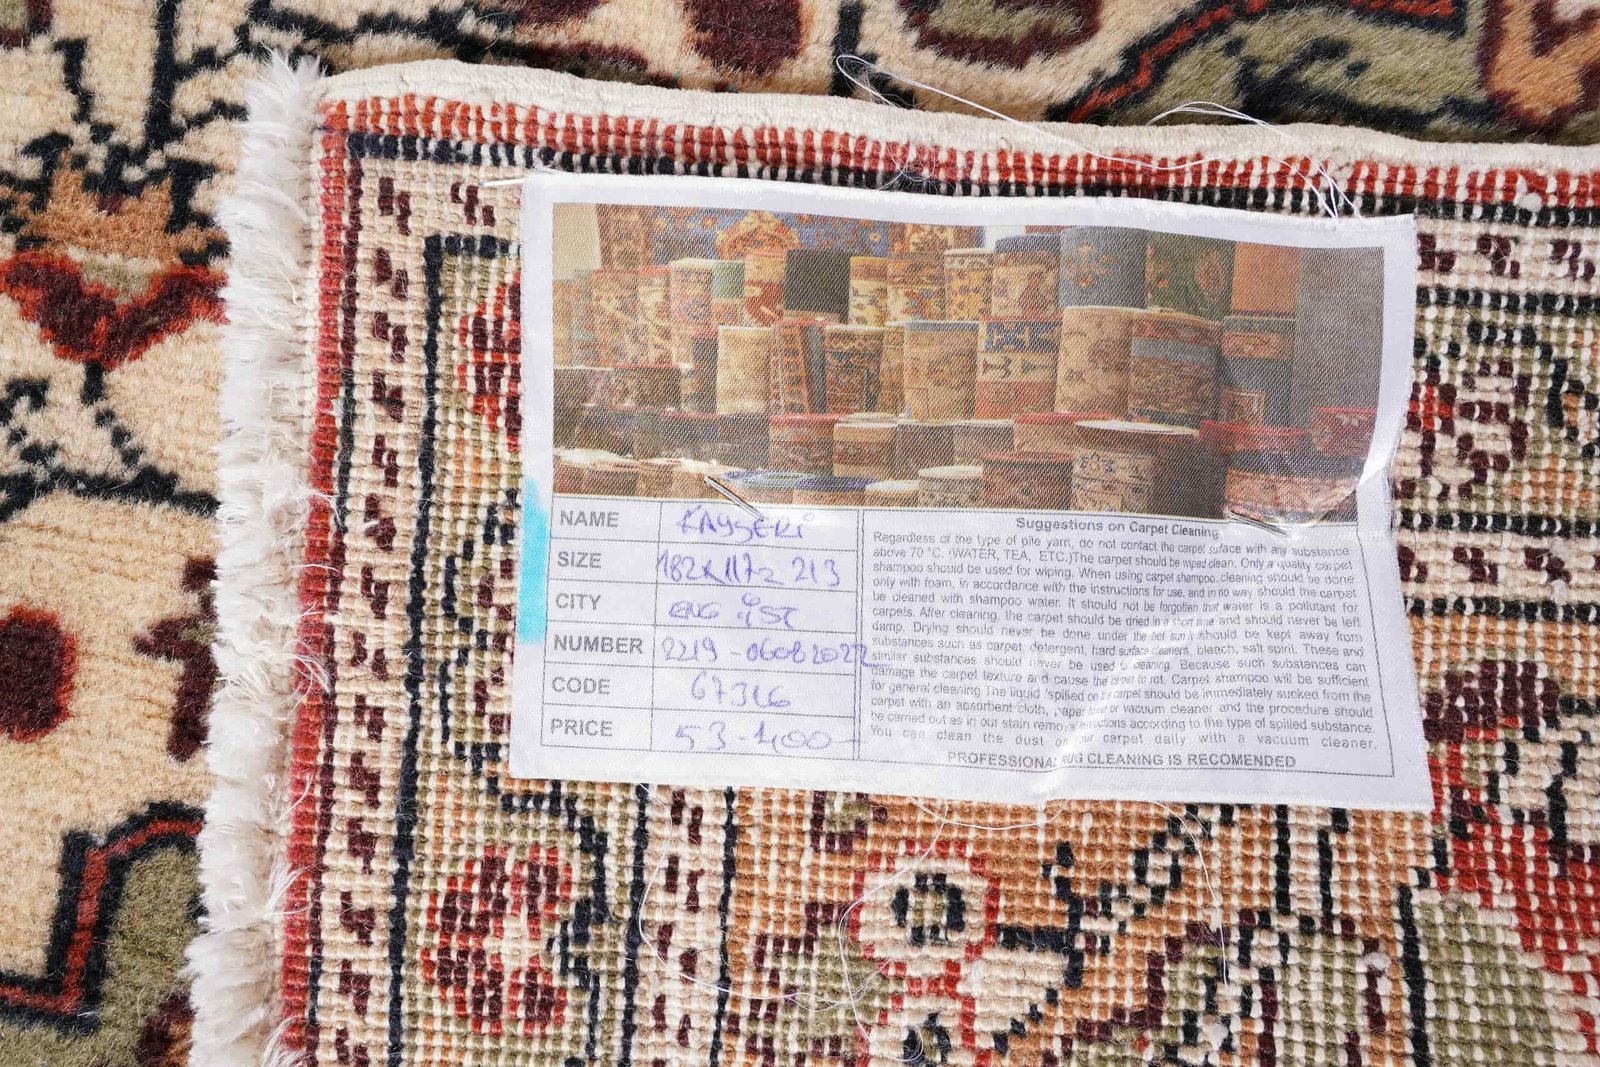 NAME KAYSERİ
SIZE 182x117= 213
CITY ENG İST
NUMBER 2219-06082022
CODE 67316
PRICE 53-400-
Suggestions on Carpet Cleaning
Regardless of the type of pile yarn, do not contact the carpet surface with any substance
above 70 °C. (WATER, TEA, ETC.)The carpet should be wiped clean. Only a quality carpet
shampoo should be used for wiping. When using carpet shampoo, cleaning should be done
only with foam, in accordance with the instructions for use, and in no way should the carpet
be cleaned with shampoo water. It should not be forgotten that water is a pollutant for
carpets. After cleaning, the carpet should be dried in a short time and should never be left
damp. Drying should never be done under the hot sun it should be kept away from
substances such as carpet detergent, hard surface cleaners, bleach, salt spirit. These and
similar substances should never be used for cleaning. Because such substances can
damage the carpet texture and cause the carpet to rot. Carpet shampoo will be sufficient
for general cleaning The liquid spilled on the carpet should be immediately sucked from the
carpet with an absorbent cloth, paper towel or vacuum cleaner and the procedure should
be carried out as in our stain removal according to the type of spilled substance.
You can clean the dust on your carpet daily with a vacuum cleaner.
PROFESSIONAL RUG CLEANING IS RECOMENDED